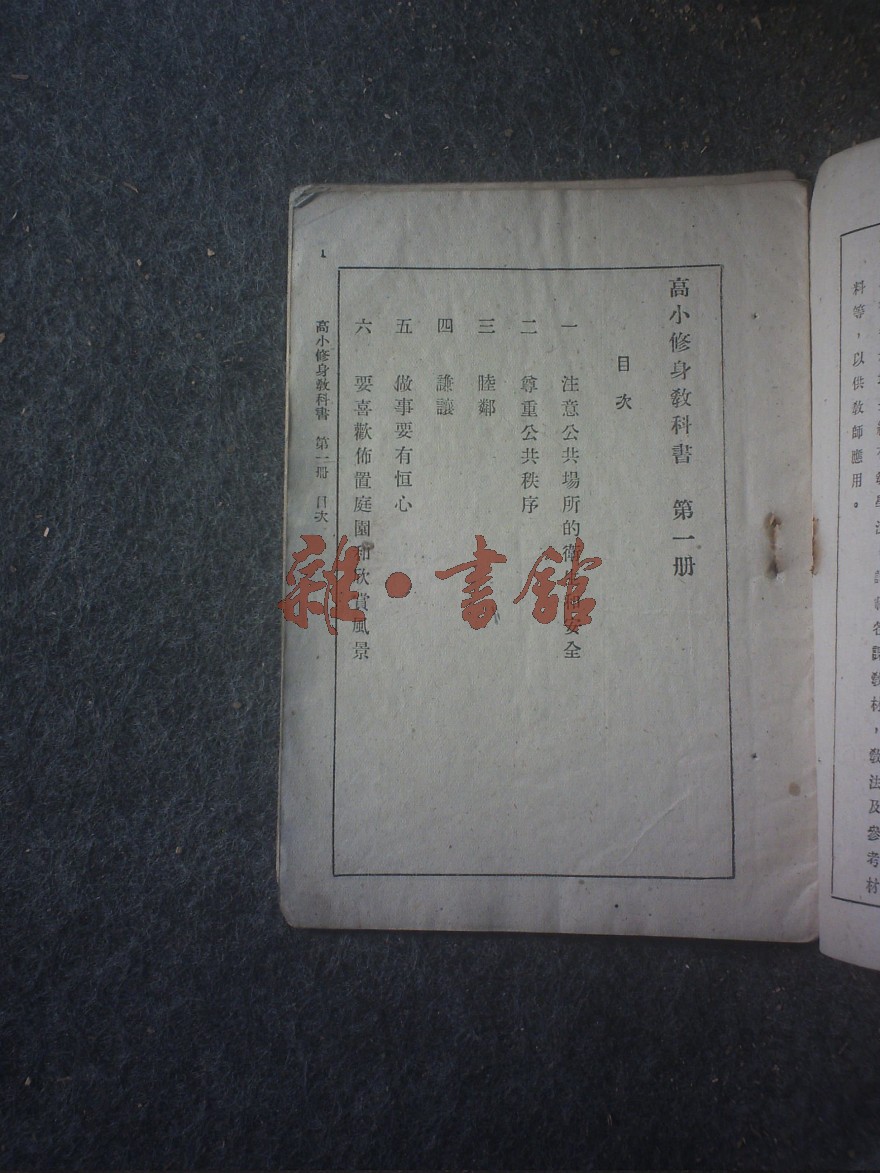 料等，以供教師應用。
高小修身教科書　第一册
目次
一　注意公共場所的衛生和安全
二　尊重公共秩序
三　睦鄰
四　謙讓
五　做事要有恒心
六　要喜歡佈置庭園和欣賞風景
高小修身教科書　第一册　目次
1
雜·書館